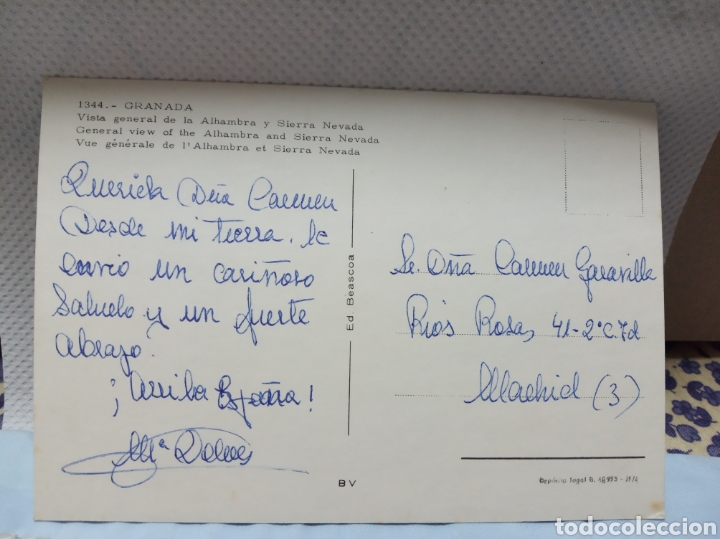 1344.- GRANADA
Vista general de la Alhambra y Sierra Nevada
General view of the Alhambra and Sierra Nevada
Vue générale de l'Alhambra et Sierra Nevada
Querida Dña Carmen
Desde mi tierra, le
envio un cariñoso
Saludo y un fuerte
abrazo.
¡Arriba España!
Mª Dolores
Ed Beascoa
BV
Sr. Dña Carmen Garavilla
Rios Rosas, 41-2º C.
Madrid (3)
Depósito legal B.
todocoleccion